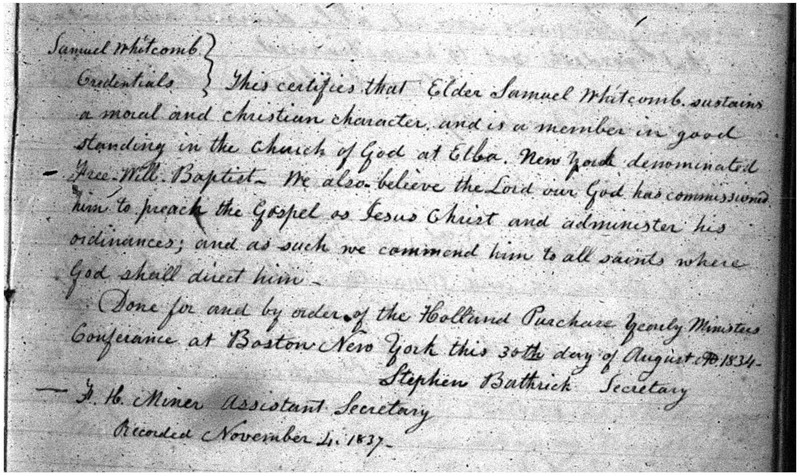 Samuel Whitcomb
Credentials } This certifies that Elder Samuel Whitcomb. sustains
a moral and christian character. and is a member in good
standing in the church of God at Elba. New York denominated
Free-Will-Baptist- We also believe the Lord our God has commissioned
him to preach the Gospel os Jesus Christ and administer his
ordinances; and as such we commend him to all saints where
God shall direct him -
Done for and by order of the Holland Purchase Yearly Ministers
Conferance at Boston New York this 30th day of August AD 1834-
Stephen Bathrick Secretary
F. H. Miner Assistant Secretary
Recorded November 4. 1837-